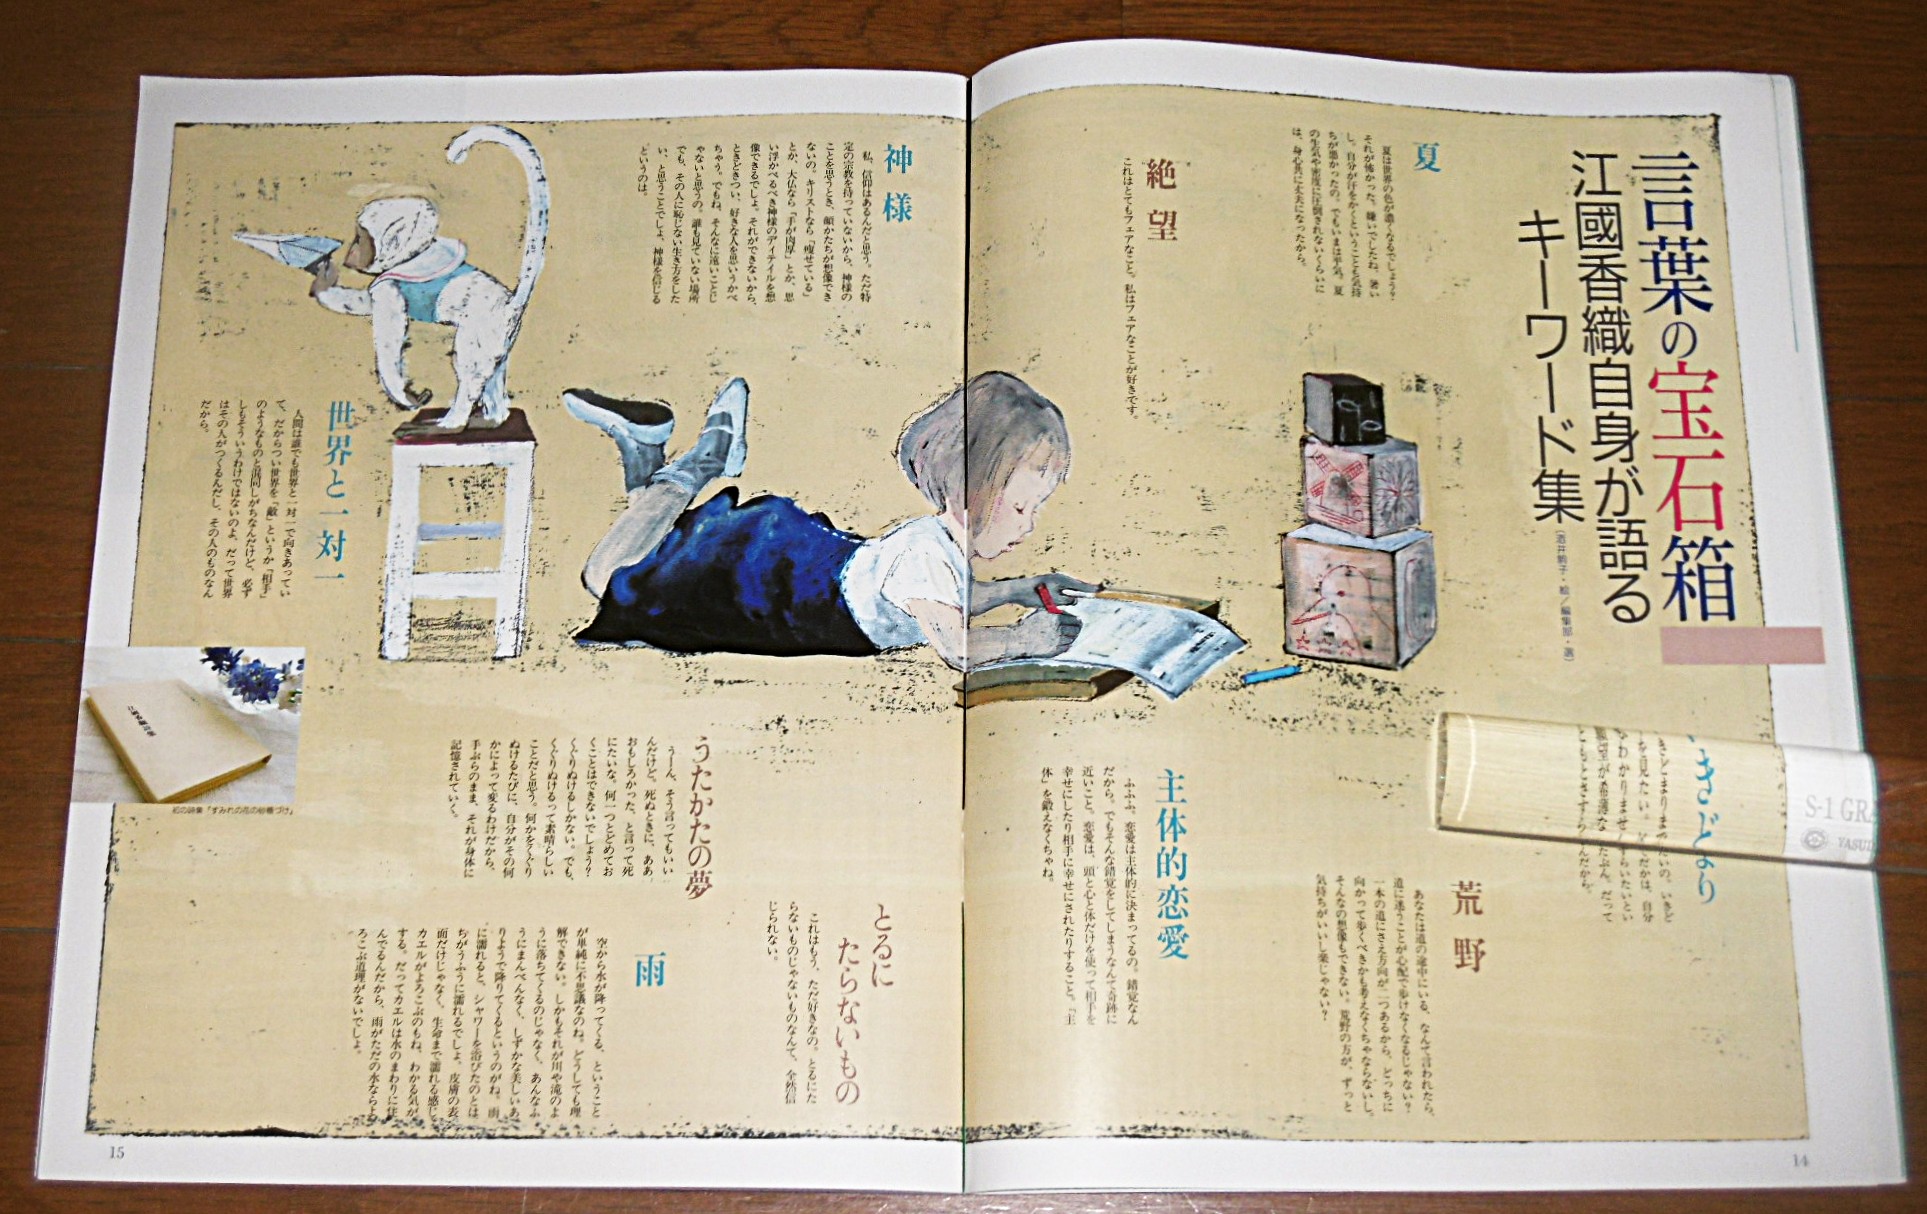 言葉の宝石箱
江國香織自身が語る
キーワード集
(酒井駒子・絵/編集部・選)
夏
夏は世界の色が濃くなるでしょう?
それが怖かった。嫌いでしたね、暑い
し、自分が汗をかくということも気持
ちが悪かったの。でもいまは平気。夏
の生気や密度に圧倒されないくらいに
は、身心共に丈夫になったから。
絶望
これはとてもフェアなこと。私はフェアなことが好きです。
きどまり
を見たい。
わかりません
荒野
あなたは道の途中にいる、なんて言われたら、
道に迷うことが心配で歩けなくなるじゃない?
一本の道にさえ方向が二つあるから、どっちに
向かって歩くべきかも考えなくちゃならないし。
そんなの想像もできない。荒野の方が、ずっと
気持ちがいいし楽じゃない?
主体的恋愛
ふふふ。恋愛は主体的に決まってるの。錯覚なん
だから。でもそんな錯覚をしてしまうなんて奇跡に
近いこと。恋愛は、頭と心と体だけを使って相手を
幸せにしたり相手に幸せにされたりすること。「主
体」を鍛えなくちゃね。
神様
私、信仰はあるんだと思う。ただ特
定の宗教を持っていないから、神様の
ことを思うとき、顔かたちが想像でき
ないの。キリストなら「痩せている」
とか、大仏なら「手が肉厚」とか、思
い浮かべるべき神様のディテイルを想
像できるでしょ。それができないから、
ときどききつい、好きな人を思いうかべ
ちゃう。でもね、そんなに遠いことじ
ゃないと思うの。誰も見ていない場所
でも、その人に恥じない生き方をした
い、と思うことでしょ、神様を信じる
というのは。
世界と一対一
人間は誰でも世界と一対一で向きあってい
て、だからつい世界を「敵」というか「相手」
のようなものと混同しがちなんだけど、必ず
しもそういうわけではないのよ。だって世界
はその人がつくるんだし、その人のものなん
だから。
初の詩集「すみれの花の砂糖づけ」
うたかたの夢
うーん、そう言ってもいい
んだけど。死ぬときに、ああ
おもしろかった、と言って死
にたいな。何一つとどめてお
くことはできないでしょう?
くぐりぬけるしかない。でも、
くぐりぬけるって素晴らしい
ことだと思う。何かをくぐり
ぬけるたびに、自分がその何
かによって変るわけだから、
手ぶらのまま、それが身体に
記憶されていく。
とるに
たらないもの
これはもう、ただ好きなの。とるにた
らないものじゃないものなんて、全然信
じられない。
雨
空から水が降ってくる、ということ
が単純に不思議なのね。どうしても理
解できない。しかもそれが川や滝のよ
うに落ちてくるのじゃなく、あんなふ
うにまんべんなく、しずかな美しいあ
りようで降りてくるというのがね。雨
に濡れると、シャワーを浴びたのとは
ちがうふうに濡れるでしょ。皮膚の表
面だけじゃなく、生命まで濡れる感じ。
カエルがよろこぶのもね、わかる気が
する。だってカエルは水のまわりに住
んでるんだから、雨がただの水ならよ
ろこぶ道理がないでしょ。
S-1 GRA
15
14